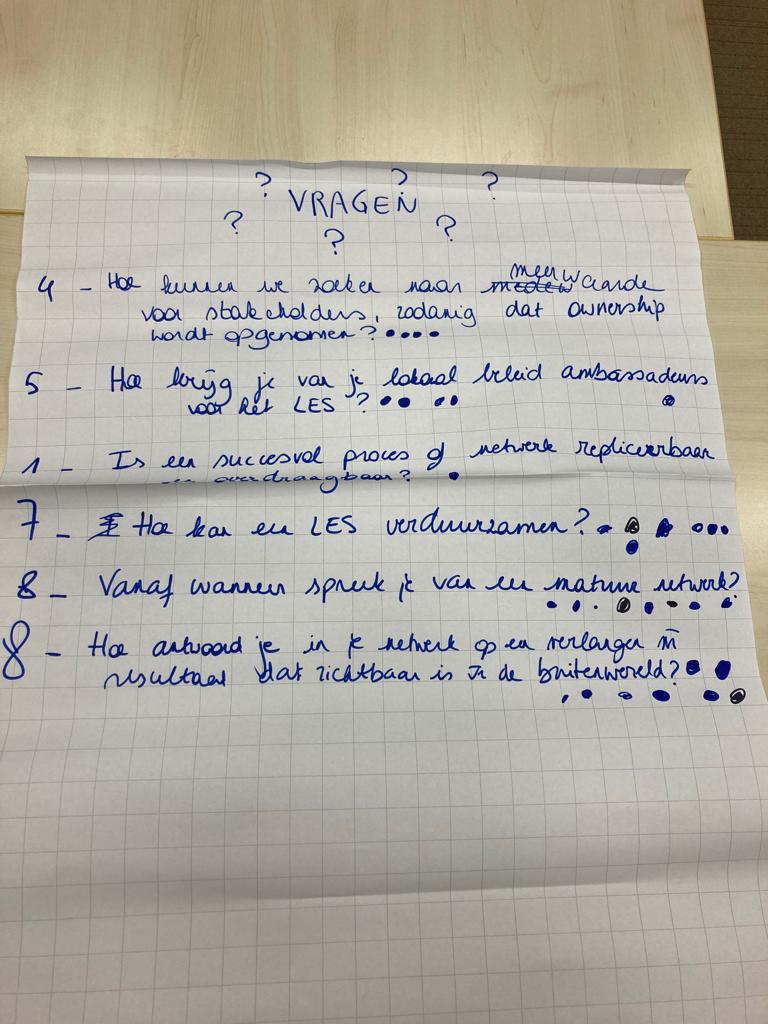 ? ? ?
VRAGEN
? ? ?
4 - Hoe kunnen we zoeken naar meerwaarde
voor stakeholders, zodanig dat ownership
wordt opgenomen?
5 - Hoe krijg je van je lokaal beleid ambassadeurs
voor het LES?
1 - Is een succesvol proces of netwerk repliceerbaar
en overdraagbaar?
7 - Hoe kan een LES verduurzamen?
8 - Vanaf wanneer spreek je van een matuur netwerk?
8 - Hoe antwoord je in je netwerk op een verlangen n̄
resultaat dat zichtbaar is in de buitenwereld?